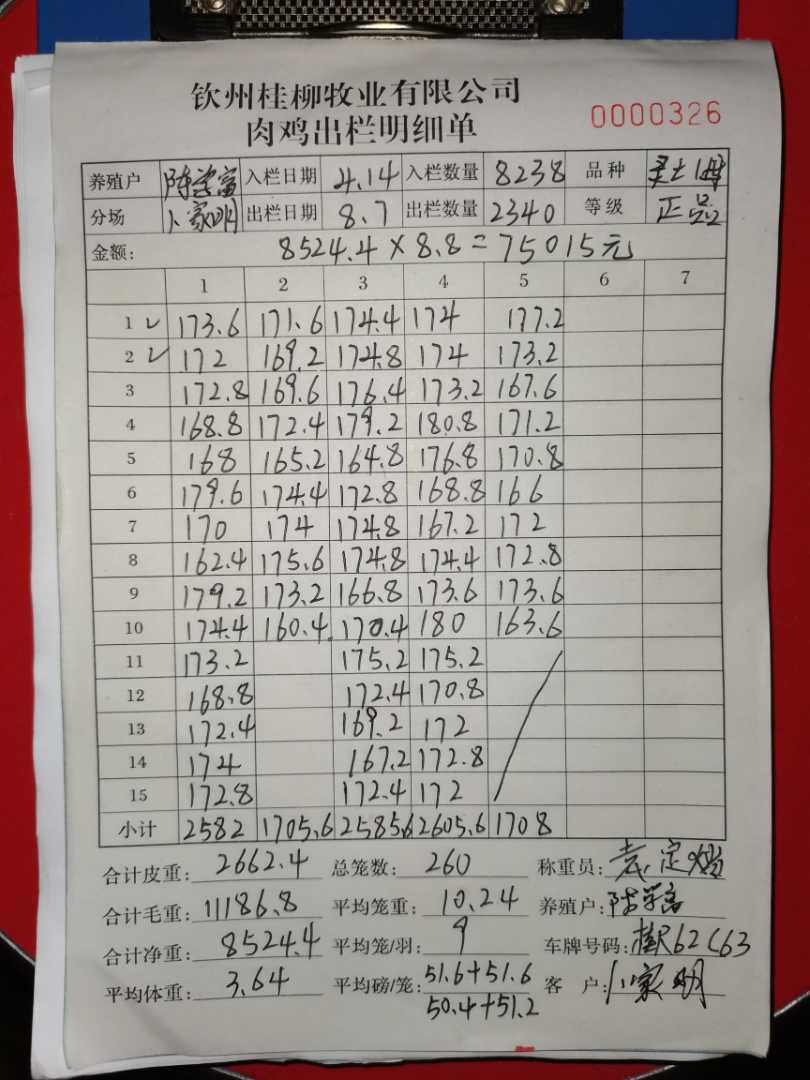 钦州桂柳牧业有限公司
肉鸡出栏明细单 0000326
养殖户 陈学富 入栏日期 4.14 入栏数量 8238 品种
分场 卜家明 出栏日期 8.7 出栏数量 2340 等级 正品
金额: 8524.4×8.8=75015元
1 2 3 4 5 6 7
1 ✓ 173.6 171.6 174.4 174 177.2
2 ✓ 172 169.2 174.8 174 173.2
3 172.8 169.6 176.4 173.2 167.6
4 168.8 172.4 179.2 180.8 171.2
5 168 165.2 164.8 176.8 170.8
6 179.6 174.4 172.8 168.8 166
7 170 174 174.8 167.2 172
8 162.4 175.6 174.8 174.4 172.8
9 179.2 173.2 166.8 173.6 173.6
10 174.4 160.4 170.4 180 163.6
11 173.2 175.2 175.2
12 168.8 172.4 170.8
13 172.4 169.2 172
14 174 167.2 172.8
15 172.8 172.4 172
小计 2582 1705.6 2585.6 2605.6 1708
合计皮重: 2662.4 总笼数: 260 称重员: 袁定
合计毛重: 11186.8 平均笼重: 10.24 养殖户: 陈学富
合计净重: 8524.4 平均笼/羽: 9 车牌号码: 桂R62C63
平均体重: 3.64 平均磅/笼: 51.6+51.6 客 户: 卜家明
50.4+51.2